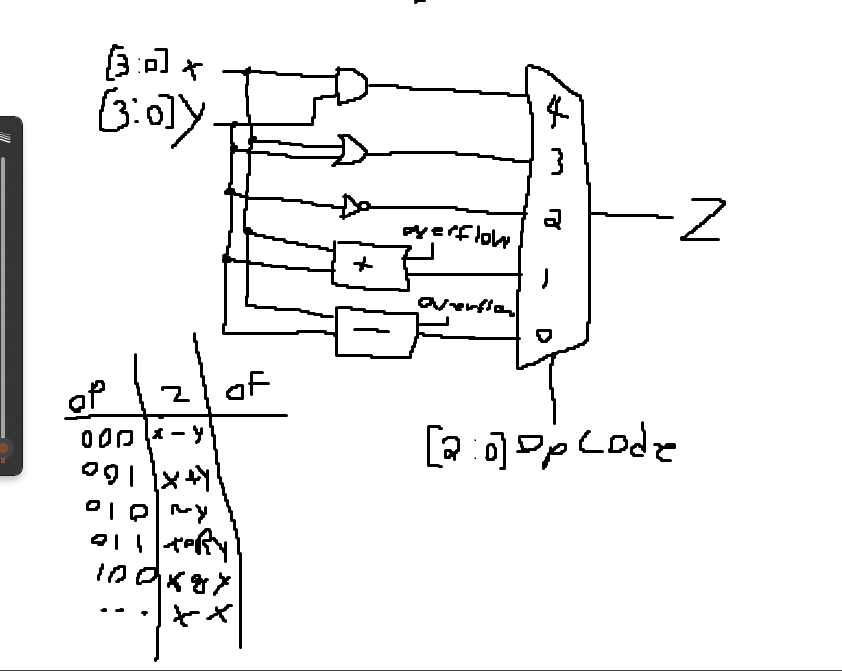 [3:0] x
[3:0] y
4
3
2
overflow
+
1
overflo
-
0
[2:0] OpCode
OP Z OF
000 x-y
001 x+y
010 ~y
011 xORy
100 x&y
... x x
Z